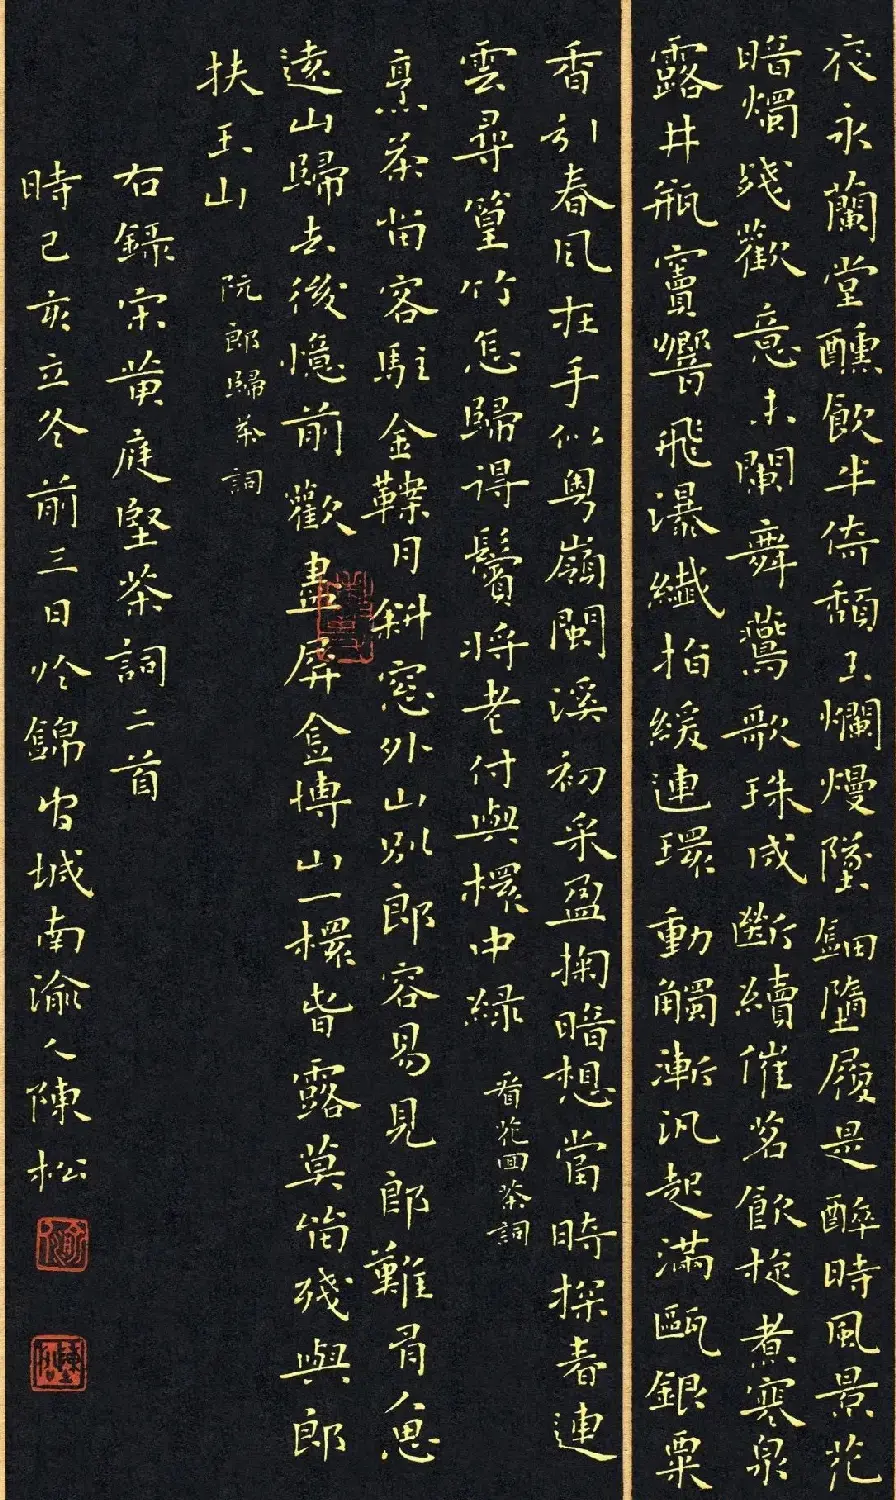 夜永蘭堂醺飲半倚頹玉爛熳墜鈿墮履是醉時風景花
暗燭殘歡意未闌舞燕歌珠成斷續催茗飲旋煮寒泉
露井瓶竇響飛瀑纖指緩連環動觸漸汎起滿甌銀粟
香引春風在手似粵嶺閩溪初采盈掬暗想當時探春連
雲尋篁竹怎歸得鬢將老付與杯中綠 看花回茶詞
烹茶留客駐金鞍月斜窓外山別郎容易見郎難有人思
遠山歸去後憶前歡畫屏金博山一杯旾露莫留殘與郎
扶玉山 阮郎歸茶詞
右錄宋黃庭堅茶詞二首
時己亥立冬前三日於錦官城南渝人陳松